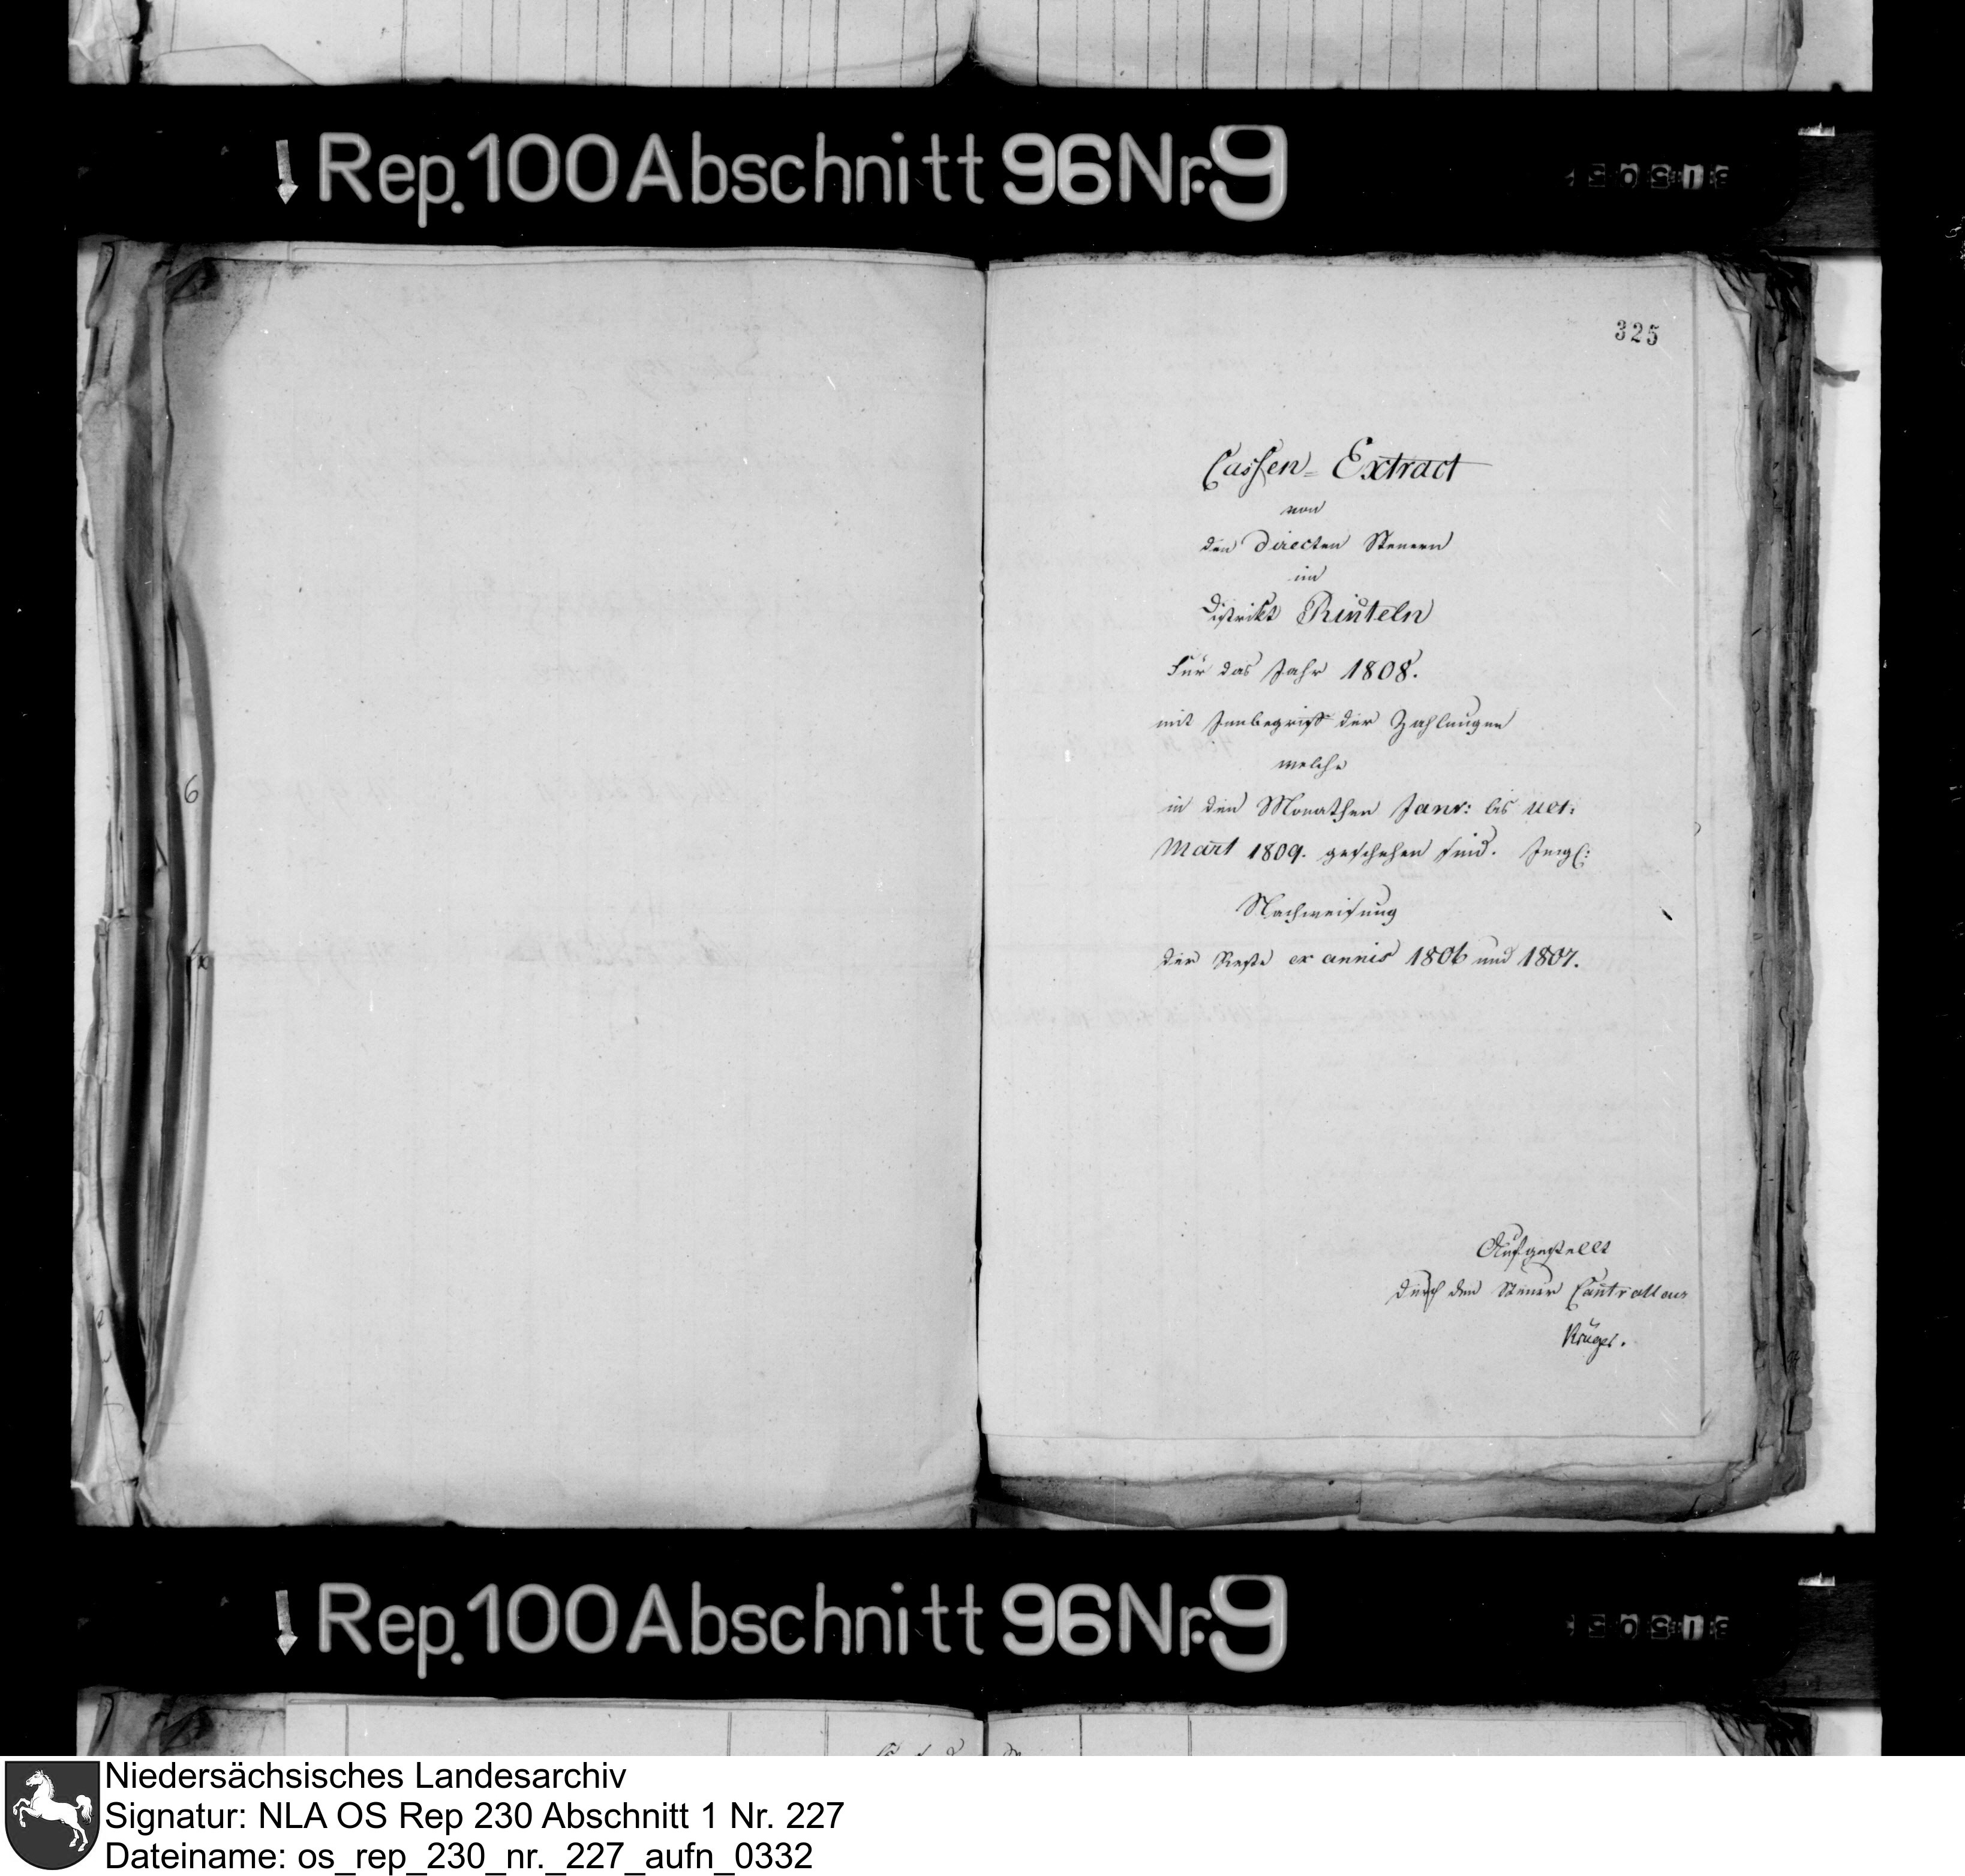 Rep. 100 Abschnitt 96 Nr. 9
325
Cassen- Extract
von
den directen Steuern
im
District Rinteln
für das Jahr 1808.
mit Innbegriff der Zahlungen
welche
in den Monathen Janr: bis ult:
Mart 1809. geschehen sind. Imgl:
Nachweisung
der Reste ex annis 1806 und 1807.
6
Aufgestellt
durch den Steuer Controlleur
Krüger.
Rep. 100 Abschnitt 96 Nr. 9
Niedersächsisches Landesarchiv
Signatur: NLA OS Rep 230 Abschnitt 1 Nr. 227
Dateiname: os_rep_230_nr._227_aufn_0332